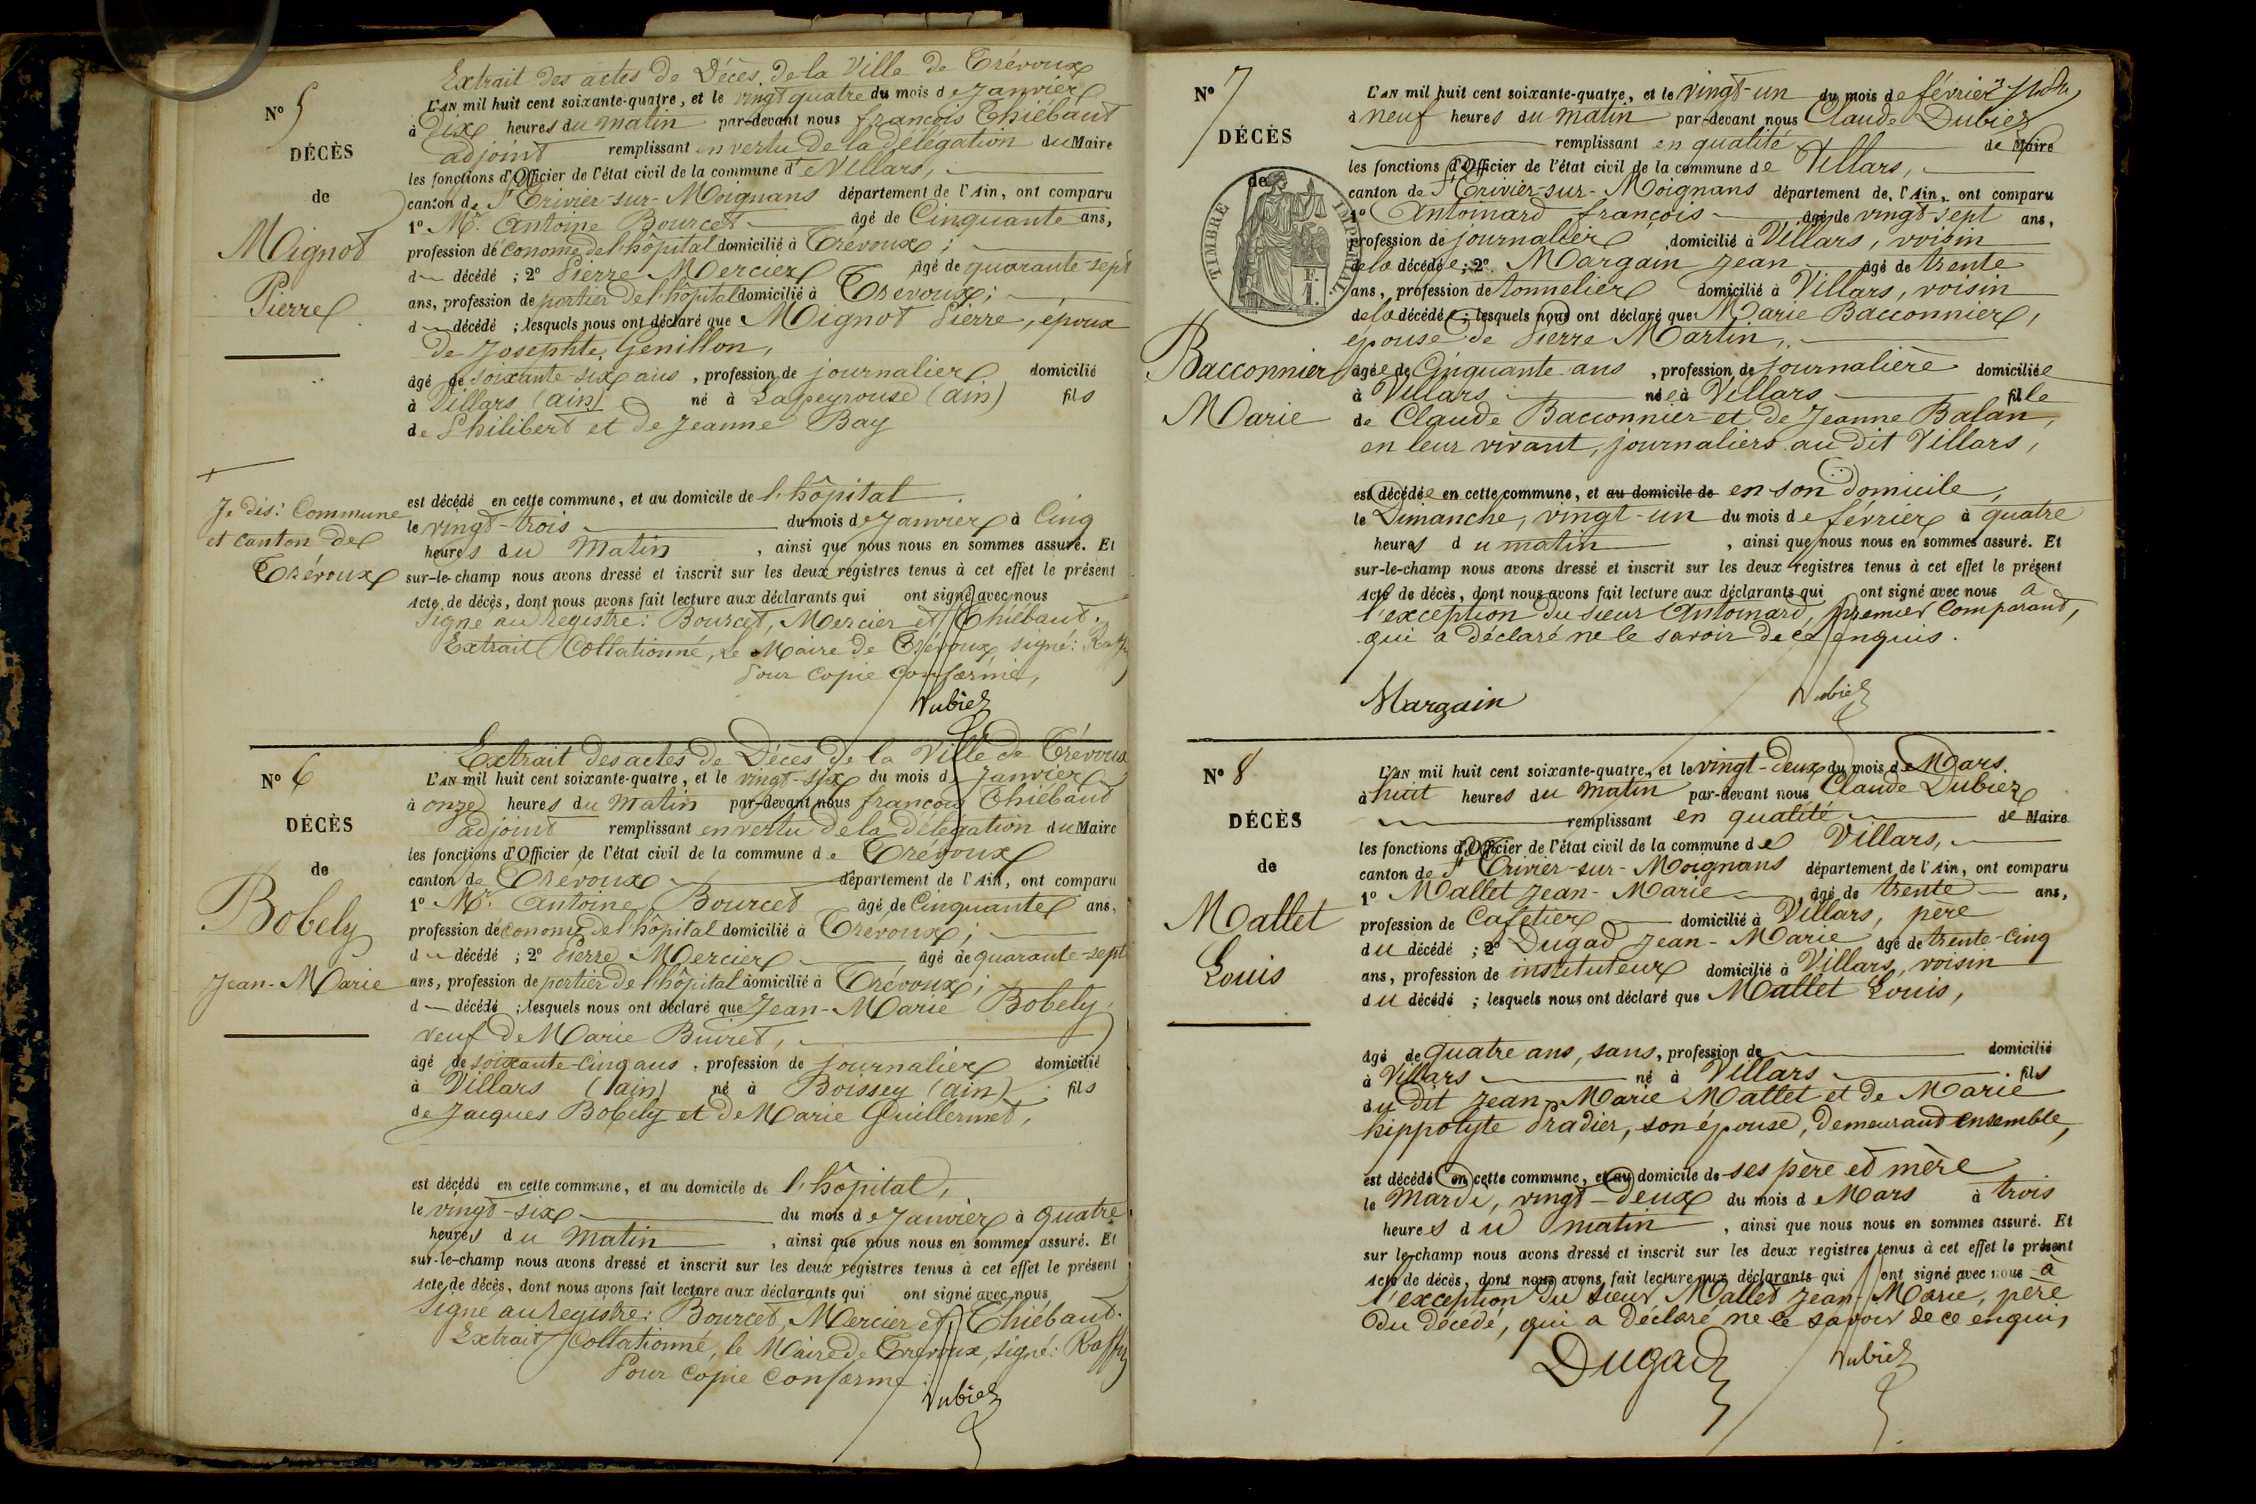 Extrait des actes de Décès de la Ville de Trévoux
N° 5
L'AN mil huit cent soixante-quatre, et le vingt quatre du mois de janvier
à dix heures du matin par-devant nous françois Thiébaut
adjoint remplissant en vertu de la délégation du Maire
DÉCÈS
les fonctions d'Officier de l'état civil de la commune de Villars,
de
canton de St Trivier-sur-Moignans département de l'Ain, ont comparu
1° Mr. Antoine Bourcet âgé de Cinquante ans,
Mignot
profession d'économe de l'hôpital domicilié à Trévoux ;
d décédé ; 2° Pierre Mercier âgé de quarante-sept
Pierre
ans, profession de portier de l'hôpital domicilié à Trévoux ;
d décédé ; lesquels nous ont déclaré que Mignot Pierre, époux
de Josephte Genillon,
âgé de soixante-six ans, profession de journalier domicilié
à Villars (ain) né à Lapeyrouse (ain) fils
de Philibert et de Jeanne Bay
est décédé en cette commune, et au domicile de l'hôpital
Je dis : Commune
et canton de
Trévoux
le vingt-trois du mois de janvier à Cinq
heures du matin, ainsi que nous nous en sommes assuré. Et
sur-le-champ nous avons dressé et inscrit sur les deux registres tenus à cet effet le présent
Acte de décès, dont nous avons fait lecture aux déclarants qui ont signé avec nous
Signé au Registre : Bourcet, Mercier et Thiébaut.
Extrait Collationné, Le Maire de Trévoux signé :
Pour Copie Conforme,
Dubiez
Extrait des actes de Décès de la Ville de Trévoux
N° 6
L'AN mil huit cent soixante-quatre, et le vingt-six du mois de janvier
à onze heures du matin par-devant nous françois Thiébaut
adjoint remplissant en vertu de la délégation du Maire
DÉCÈS
les fonctions d'Officier de l'état civil de la commune de Trévoux
de
canton de Trévoux département de l'Ain, ont comparu
1° Mr. Antoine Bourcet âgé de Cinquante ans,
Bobely
profession d'économe de l'hôpital domicilié à Trévoux ;
d décédé ; 2° Pierre Mercier âgé de quarante-sept
Jean-Marie
ans, profession de portier de l'hôpital domicilié à Trévoux ;
d décédé ; lesquels nous ont déclaré que Jean-Marie Bobely,
veuf de Marie Buiret,
âgé de soixante-cinq ans, profession de journalier domicilié
à Villars (ain) né à Boissey (ain) fils
de Jacques Bobely et de Marie Guillermet,
est décédé en cette commune, et au domicile de l'hôpital,
le vingt-six du mois de janvier à quatre
heures du matin, ainsi que nous nous en sommes assuré. Et
sur-le-champ nous avons dressé et inscrit sur les deux registres tenus à cet effet le présent
Acte de décès, dont nous avons fait lecture aux déclarants qui ont signé avec nous
Signé au Registre : Bourcet, Mercier et Thiébaut.
Extrait Collationné, le Maire de Trévoux, signé : Raffin
Pour Copie Conforme :
Dubiez
N° 7
L'AN mil huit cent soixante-quatre, et le vingt-un du mois de février
à neuf heures du matin par-devant nous Claude Dubiez
DÉCÈS
remplissant en qualité de Maire
les fonctions d'Officier de l'état civil de la commune de Villars,
de
canton de St Trivier-sur-Moignans département de l'Ain, ont comparu
TIMBRE IMPÉRIAL
1° Antoinard françois âgé de vingt-sept ans,
profession de journalier, domicilié à Villars, voisin
de la décédée ; 2° Margain Jean âgé de trente
ans, profession de tonnelier domicilié à Villars, voisin
de la décédée ; lesquels nous ont déclaré que Marie Bacconnier,
épouse de Pierre Martin,
Bacconnier
Marie
âgée de Cinquante ans, profession de journalière domiciliée
à Villars née à Villars fille
de Claude Bacconnier et de Jeanne Balan,
en leur vivant, journaliers au dit Villars,
est décédée en cette commune, et au domicile de en son domicile,
le Dimanche, vingt-un du mois de février à quatre
heures du matin, ainsi que nous nous en sommes assuré. Et
sur-le-champ nous avons dressé et inscrit sur les deux registres tenus à cet effet le présent
Acte de décès, dont nous avons fait lecture aux déclarants qui ont signé avec nous à
l'exception du sieur Antoinard, premier Comparant,
qui a déclaré ne le savoir de ce enquis.
Margain Dubiez
N° 8
L'AN mil huit cent soixante-quatre, et le vingt-deux du mois de Mars
à huit heures du matin par-devant nous Claude Dubiez
DÉCÈS
remplissant en qualité de Maire
les fonctions d'Officier de l'état civil de la commune de Villars,
de
canton de St Trivier-sur-Moignans département de l'Ain, ont comparu
1° Mallet Jean-Marie âgé de trente ans,
Mallet
profession de Cafetier domicilié à Villars, père
du décédé ; 2° Dugad Jean-Marie âgé de trente-cinq
Louis
ans, profession de instituteur domicilié à Villars, voisin
du décédé ; lesquels nous ont déclaré que Mallet Louis,
âgé de quatre ans, sans, profession de domicilié
à Villars né à Villars fils
du dit Jean-Marie Mallet et de Marie
hippolyte Pradier, son épouse, demeurant ensemble,
est décédé en cette commune, et au domicile de ses père et mère
le Mardi, vingt-deux du mois de Mars à trois
heures du matin, ainsi que nous nous en sommes assuré. Et
sur le-champ nous avons dressé et inscrit sur les deux registres tenus à cet effet le présent
Acte de décès, dont nous avons fait lecture aux déclarants qui ont signé avec nous à
l'exception du sieur Mallet Jean-Marie, père
du décédé, qui a déclaré ne le savoir de ce enquis
Dugad Dubiez